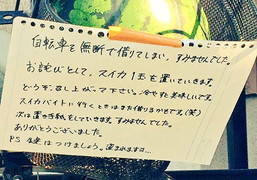 自転車を無断で借りてしまい、すみませんでした。
お詫びとして、スイカ1玉を置いていきます。
どうぞ、召し上がって下さい。冷やすと美味しいです。
スイカバイトに行くときはまた借りるかもです。(笑)
次は置き手紙をしていきます。すみませんでした。
ありがとうございました。
P.S 鍵はつけましょう。盗まれますヨ…